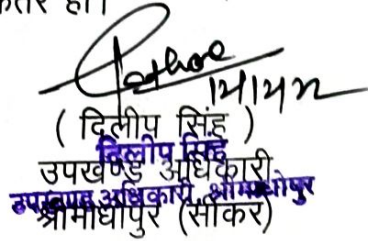 हो।
( दिलीप सिंह )
दिलीप सिंह
उपखण्ड अधिकारी
उपखण्ड अधिकारी, श्रीमाधोपुर
श्रीमाधोपुर (सीकर)